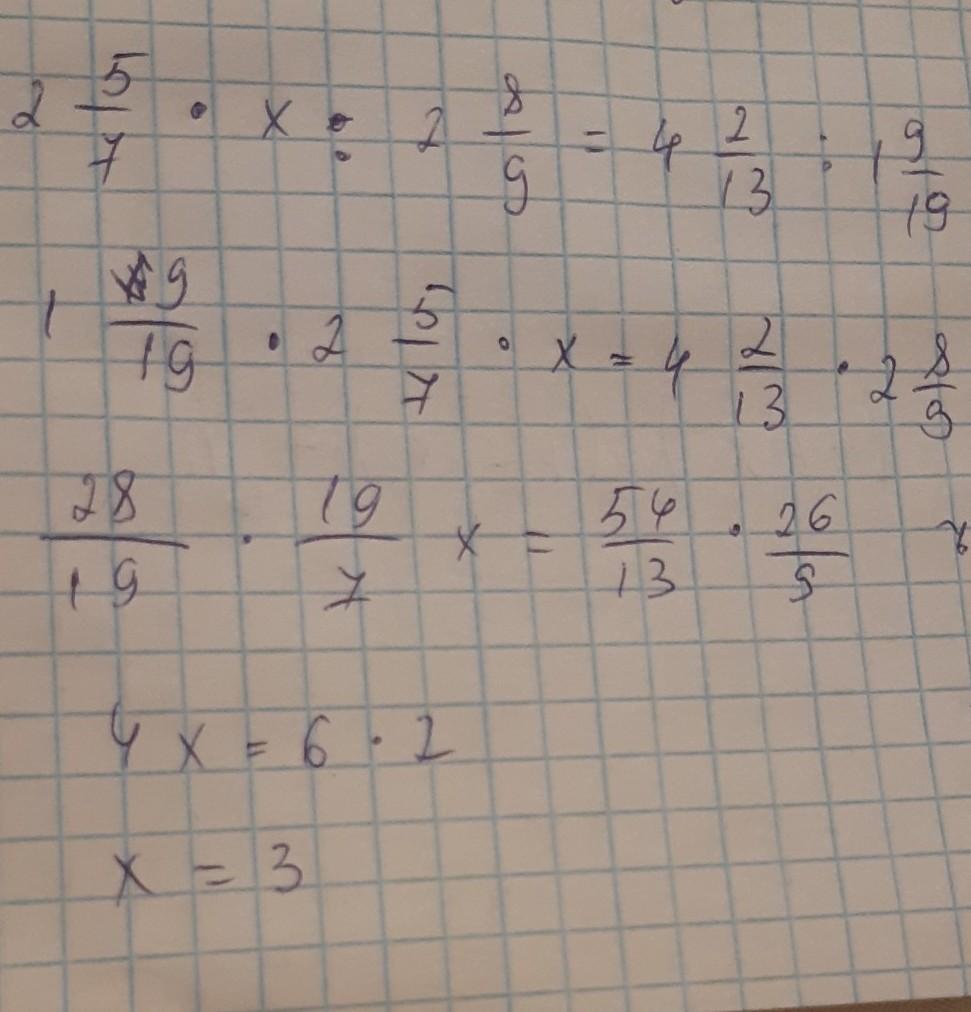 2 5/7 · x : 2 8/9 = 4 2/13 : 1 9/19
1 9/19 · 2 5/7 · x = 4 2/13 · 2 8/9
28/19 · 19/7 x = 54/13 · 26/9
4 x = 6 · 2
x = 3